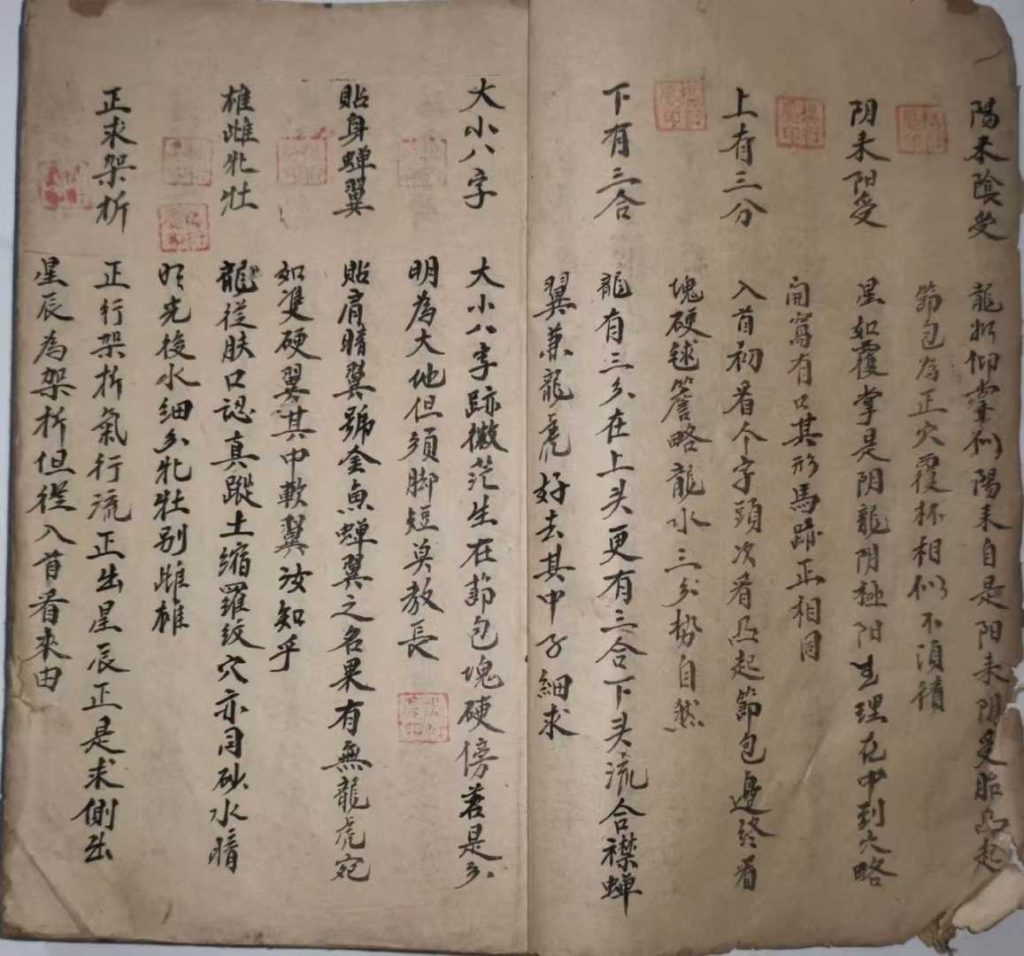 陽來陰受 龍如仰掌似陽來自是阳來阴受胎凸起
節包為正穴覆杯相似不須猜
阴來阳受 星如覆掌是阴龍阴極阳生理在中到穴略
開窩有口其形馬跡正相同
上有三分 入首初看个字頭次看凸起節包邊終看
塊硬毬簷略龍水三分势自然
下有三合 龍有三分在上头更有三合下头流合襟蝉
翼兼龍虎好去其中子細求
大小八字 大小八字跡微茫生在節包塊硬傍若是分
明為大地但須脚短莫教長
貼身蝉翼 貼肩暗翼號金魚蝉翼之名果有無龍虎宛
如雙硬翼其中軟翼汝知乎
雄雌牝牡 龍從肤口認真蹤土缩羅紋穴亦同砂水暗
明先後水細分牝牡别雌雄
正求架折 正行架折氣行流正出星辰正是求側出
星辰為架折但從入首看來由